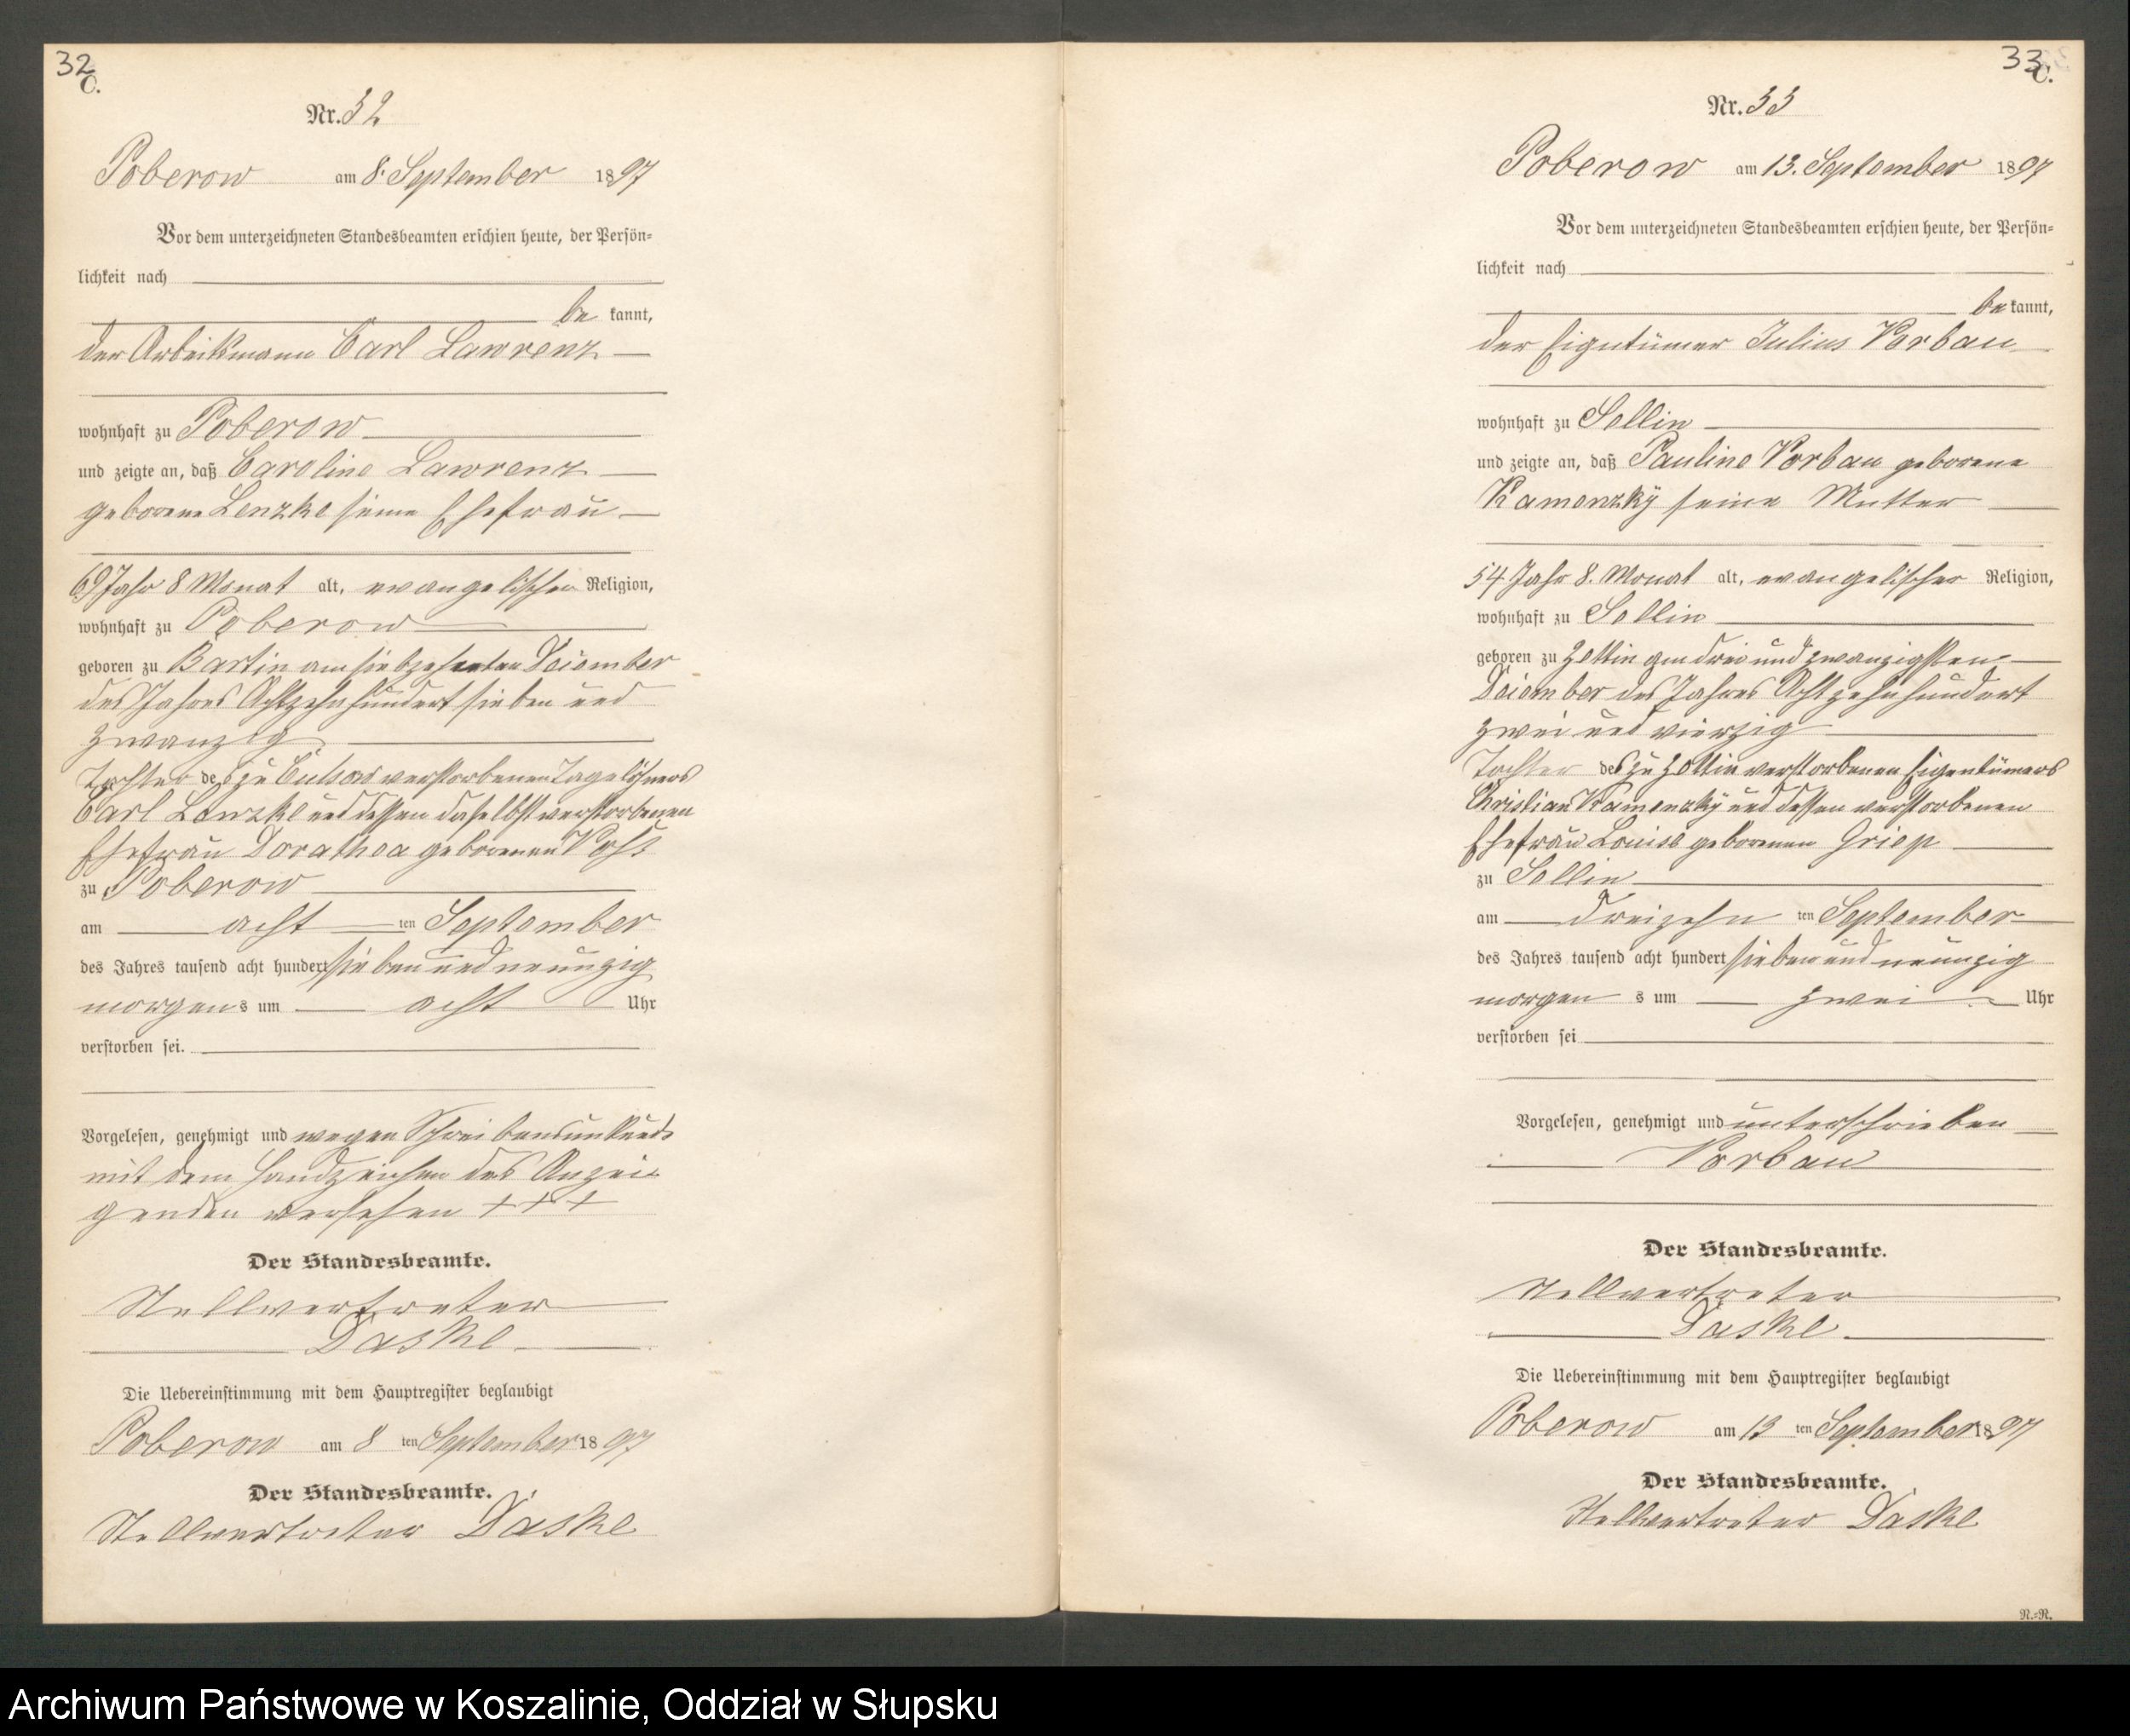 32
C.
Nr. 32
Poberow am 8. September 1897
Vor dem unterzeichneten Standesbeamten erschien heute, der Persön=
lichkeit nach
be kannt,
der Arbeitsmann Carl Lawrenz
wohnhaft zu Poberow
und zeigte an, daß Caroline Lawrenz
geborene Lenzke seine Ehefrau
69 Jahr 8 Monat alt, evangelischer Religion,
wohnhaft zu Poberow
geboren zu Bartin am siebzehnten Dezember
des Jahres Achtzehnhundert sieben und
zwanzig
Tochter des zu verstorbenen Tagelöhners
Carl Lenzke und dessen daselbst verstorbenen
Ehefrau Dorathea geborenen Voß
zu Poberow
am acht ten September
des Jahres tausend acht hundert sieben und neunzig
morgens um acht Uhr
verstorben sei.
Vorgelesen, genehmigt und wegen Schreibensunkunde
mit dem Handzeichen des Anzei=
genden versehen +++
Der Standesbeamte.
Stellvertreter
Daske
Die Uebereinstimmung mit dem Hauptregister beglaubigt
Poberow am 8 ten September 1897
Der Standesbeamte.
Stellvertreter Daske
33
C.
Nr. 33
Poberow am 13. September 1897
Vor dem unterzeichneten Standesbeamten erschien heute, der Persön=
lichkeit nach
be kannt,
der Eigentümer Julius Vorbau
wohnhaft zu Sellin
und zeigte an, daß Pauline Vorbau geborene
Kamenzky seine Mutter
54 Jahr 8. Monat alt, evangelischer Religion,
wohnhaft zu Sellin
geboren zu Zettin am drei und zwanzigsten
Dezember des Jahres Achtzehnhundert
zwei und vierzig
Tochter des zu Zettin verstorbenen Eigentümers
Christian Kamenzky und dessen verstorbenen
Ehefrau Louise geborenen Griep
zu Sellin
am dreizehn ten September
des Jahres tausend acht hundert sieben und neunzig
morgen s um zwei Uhr
verstorben sei
Vorgelesen, genehmigt und unterschrieben
Vorbau
Der Standesbeamte.
Stellvertreter
Daske
Die Uebereinstimmung mit dem Hauptregister beglaubigt
Poberow am 13 ten September 1897
Der Standesbeamte.
Stellvertreter Daske
N.=N.
Archiwum Państwowe w Koszalinie, Oddział w Słupsku